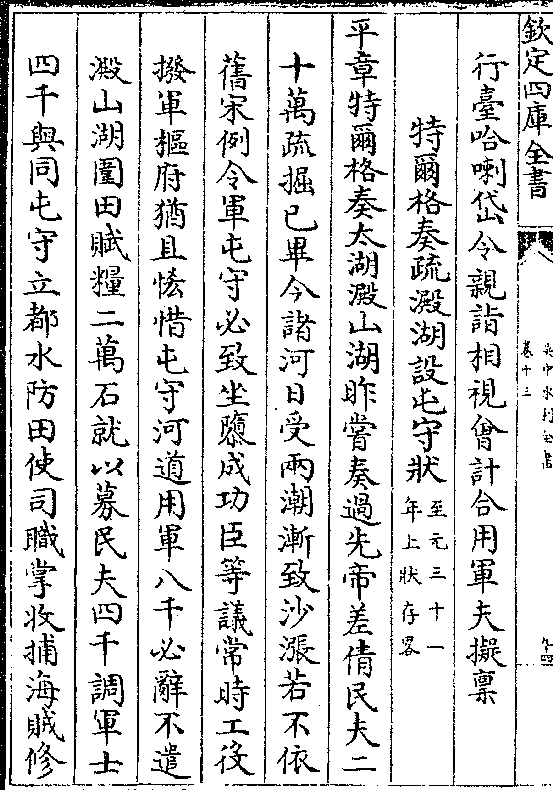 欽定四庫全書
吳中水利全書
卷十三
行臺哈喇岱令親詣相視會計合用軍夫擬禀
特爾格奏疏澱湖設屯守狀至元三十一年上狀存畧
平章特爾格奏太湖澱山湖昨嘗奏過先帝差倩民夫二
十萬疏掘已畢今諸河日受兩潮漸致沙漲若不依
舊宋例令軍屯守必致坐隳成功臣等議常時工役
撥軍樞府猶且恡惜屯守河道用軍八千必辭不遣
澱山湖圍田賦糧二萬石就以募民夫四千調軍士
四千與同屯守立都水防田使司職掌收捕海賊修